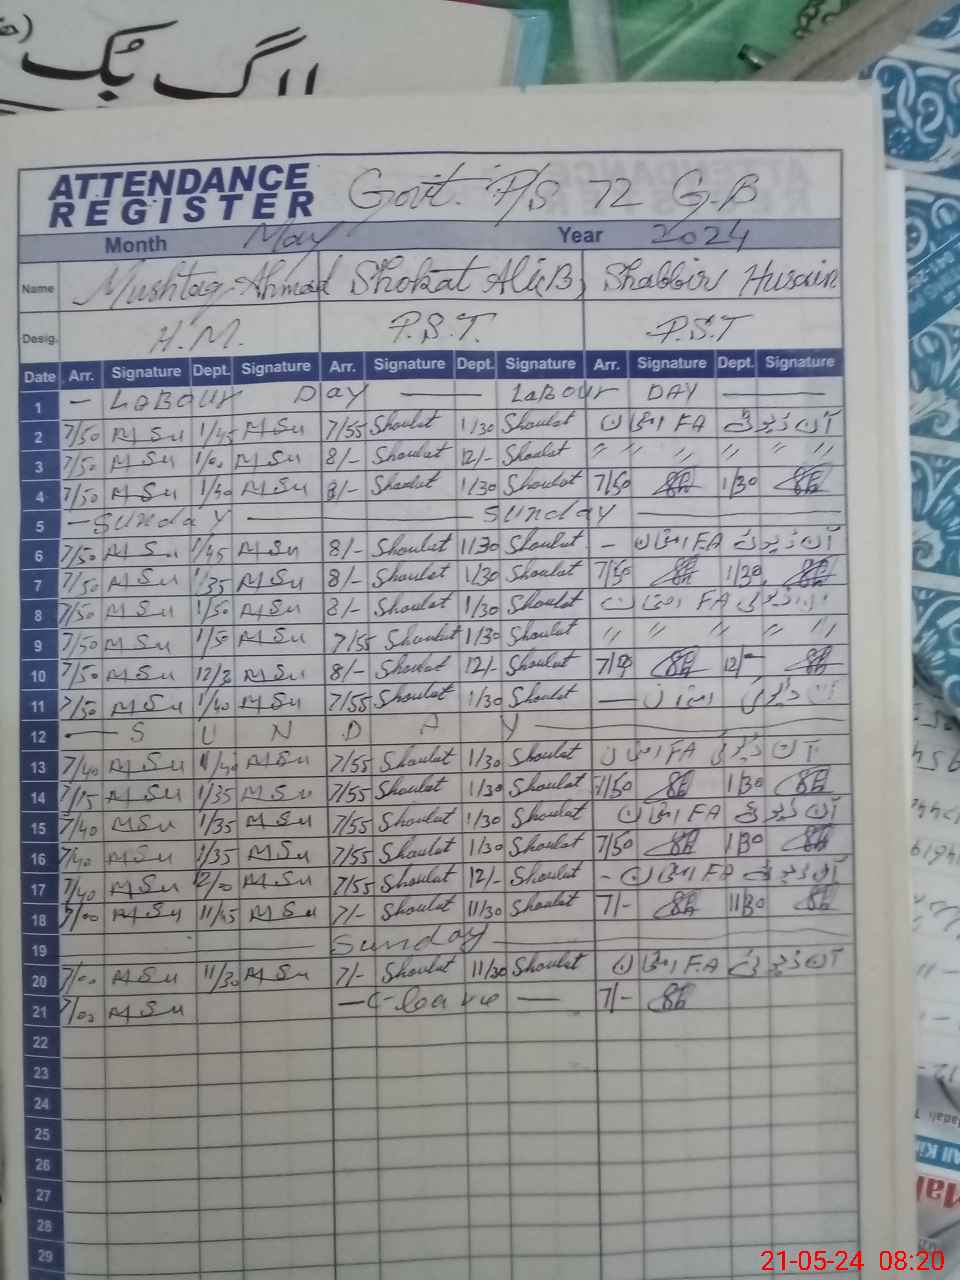 لاگ بُک
ATTENDANCE REGISTER Govt. P/S 72 G-B
Month May Year 2024
Name Mushtaq Ahmad Shokat Ali B, Shabbir Husain
Desig. H.M. P.S.T. P.S.T
Date Arr. Signature Dept. Signature Arr. Signature Dept. Signature Arr. Signature Dept. Signature
1 — LABOUR DAY — LABOUR DAY —
2 7/50 M Su 1/45 M Su 7/55 Shoulat 1/30 Shoulat آن ڈیوٹی FA امتحان
3 7/50 M Su 1/00 M Su 8/- Shoulat 12/- Shoulat " " " " " "
4 7/50 M Su 1/50 M Su 8/- Shoulat 1/30 Shoulat 7/50 1/30
5 — Sunday — Sunday —
6 7/50 M Su 1/45 M Su 8/- Shoulat 1/30 Shoulat - آن ڈیوٹی FA امتحان
7 7/50 M Su 1/35 M Su 8/- Shoulat 1/30 Shoulat 7/50 1/30
8 7/50 M Su 1/50 M Su 8/- Shoulat 1/30 Shoulat آن ڈیوٹی FA امتحان
9 7/50 M Su 1/50 M Su 7/55 Shoulat 1/30 Shoulat " " " " "
10 7/50 M Su M Su 8/- Shoulat 12/- Shoulat 12/-
11 7/50 M Su 1/40 M Su 7/55 Shoulat 1/30 Shoulat — آن ڈیوٹی امتحان
12 — S U N D A Y —
13 7/40 M Su M Su 7/55 Shoulat 1/30 Shoulat آن ڈیوٹی FA امتحان
14 7/15 M Su 1/35 M Su 7/55 Shoulat 1/30 Shoulat 7/50 1/30
15 7/40 M Su 1/35 M Su 7/55 Shoulat 1/30 Shoulat آن ڈیوٹی FA امتحان
16 7/40 M Su 1/35 M Su 7/55 Shoulat 1/30 Shoulat 7/50 1/30
17 7/40 M Su 12/00 M Su 7/55 Shoulat 12/- Shoulat - آن ڈیوٹی FA امتحان
18 7/00 M Su 11/45 M Su 7/- Shoulat 11/30 Shoulat 7/- 11/30
19 — Sunday —
20 7/00 M Su 11/30 M Su 7/- Shoulat 11/30 Shoulat آن ڈیوٹی F.A امتحان
21 7/00 M Su — C-leave — 7/-
22
23
24
25
26
27
28
29
21-05-24 08:20